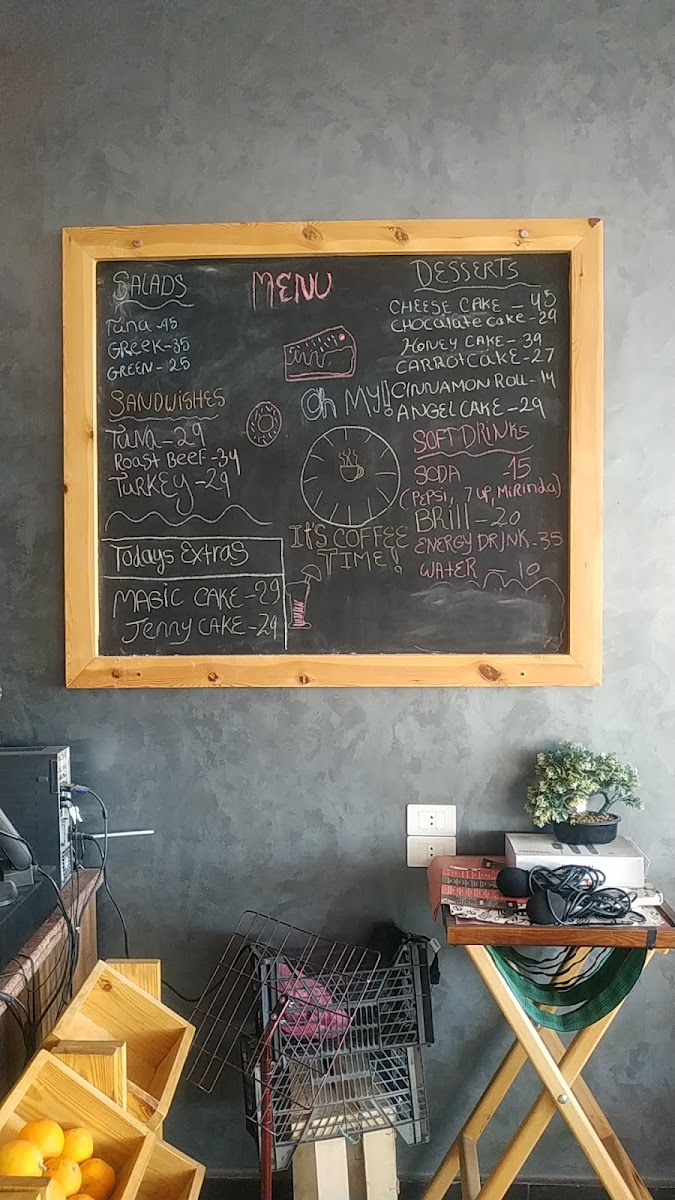 MENU
SALADS
Tuna -45
GREEK-35
GREEN - 25
SANDWISHES
TUNA - 29
ROAST BEEF -34
TURKEY - 29
Todays EXTRAS
MAGIC CAKE - 29
Jenny CAKE - 29
Oh MY!
It'S COFFEE
TIME!
DESSERTS
CHEESE CAKE - 45
CHOCOLATE CAKE - 29
HONEY CAKE - 39
CARROT CAKE - 27
CINNAMON ROLL - 14
ANGEL CAKE - 29
SOFT DRINKS
SODA -15
(PEPSI, 7 UP, MIRINDA)
BRILL - 20
ENERGY DRINK - 35
WATER - 10